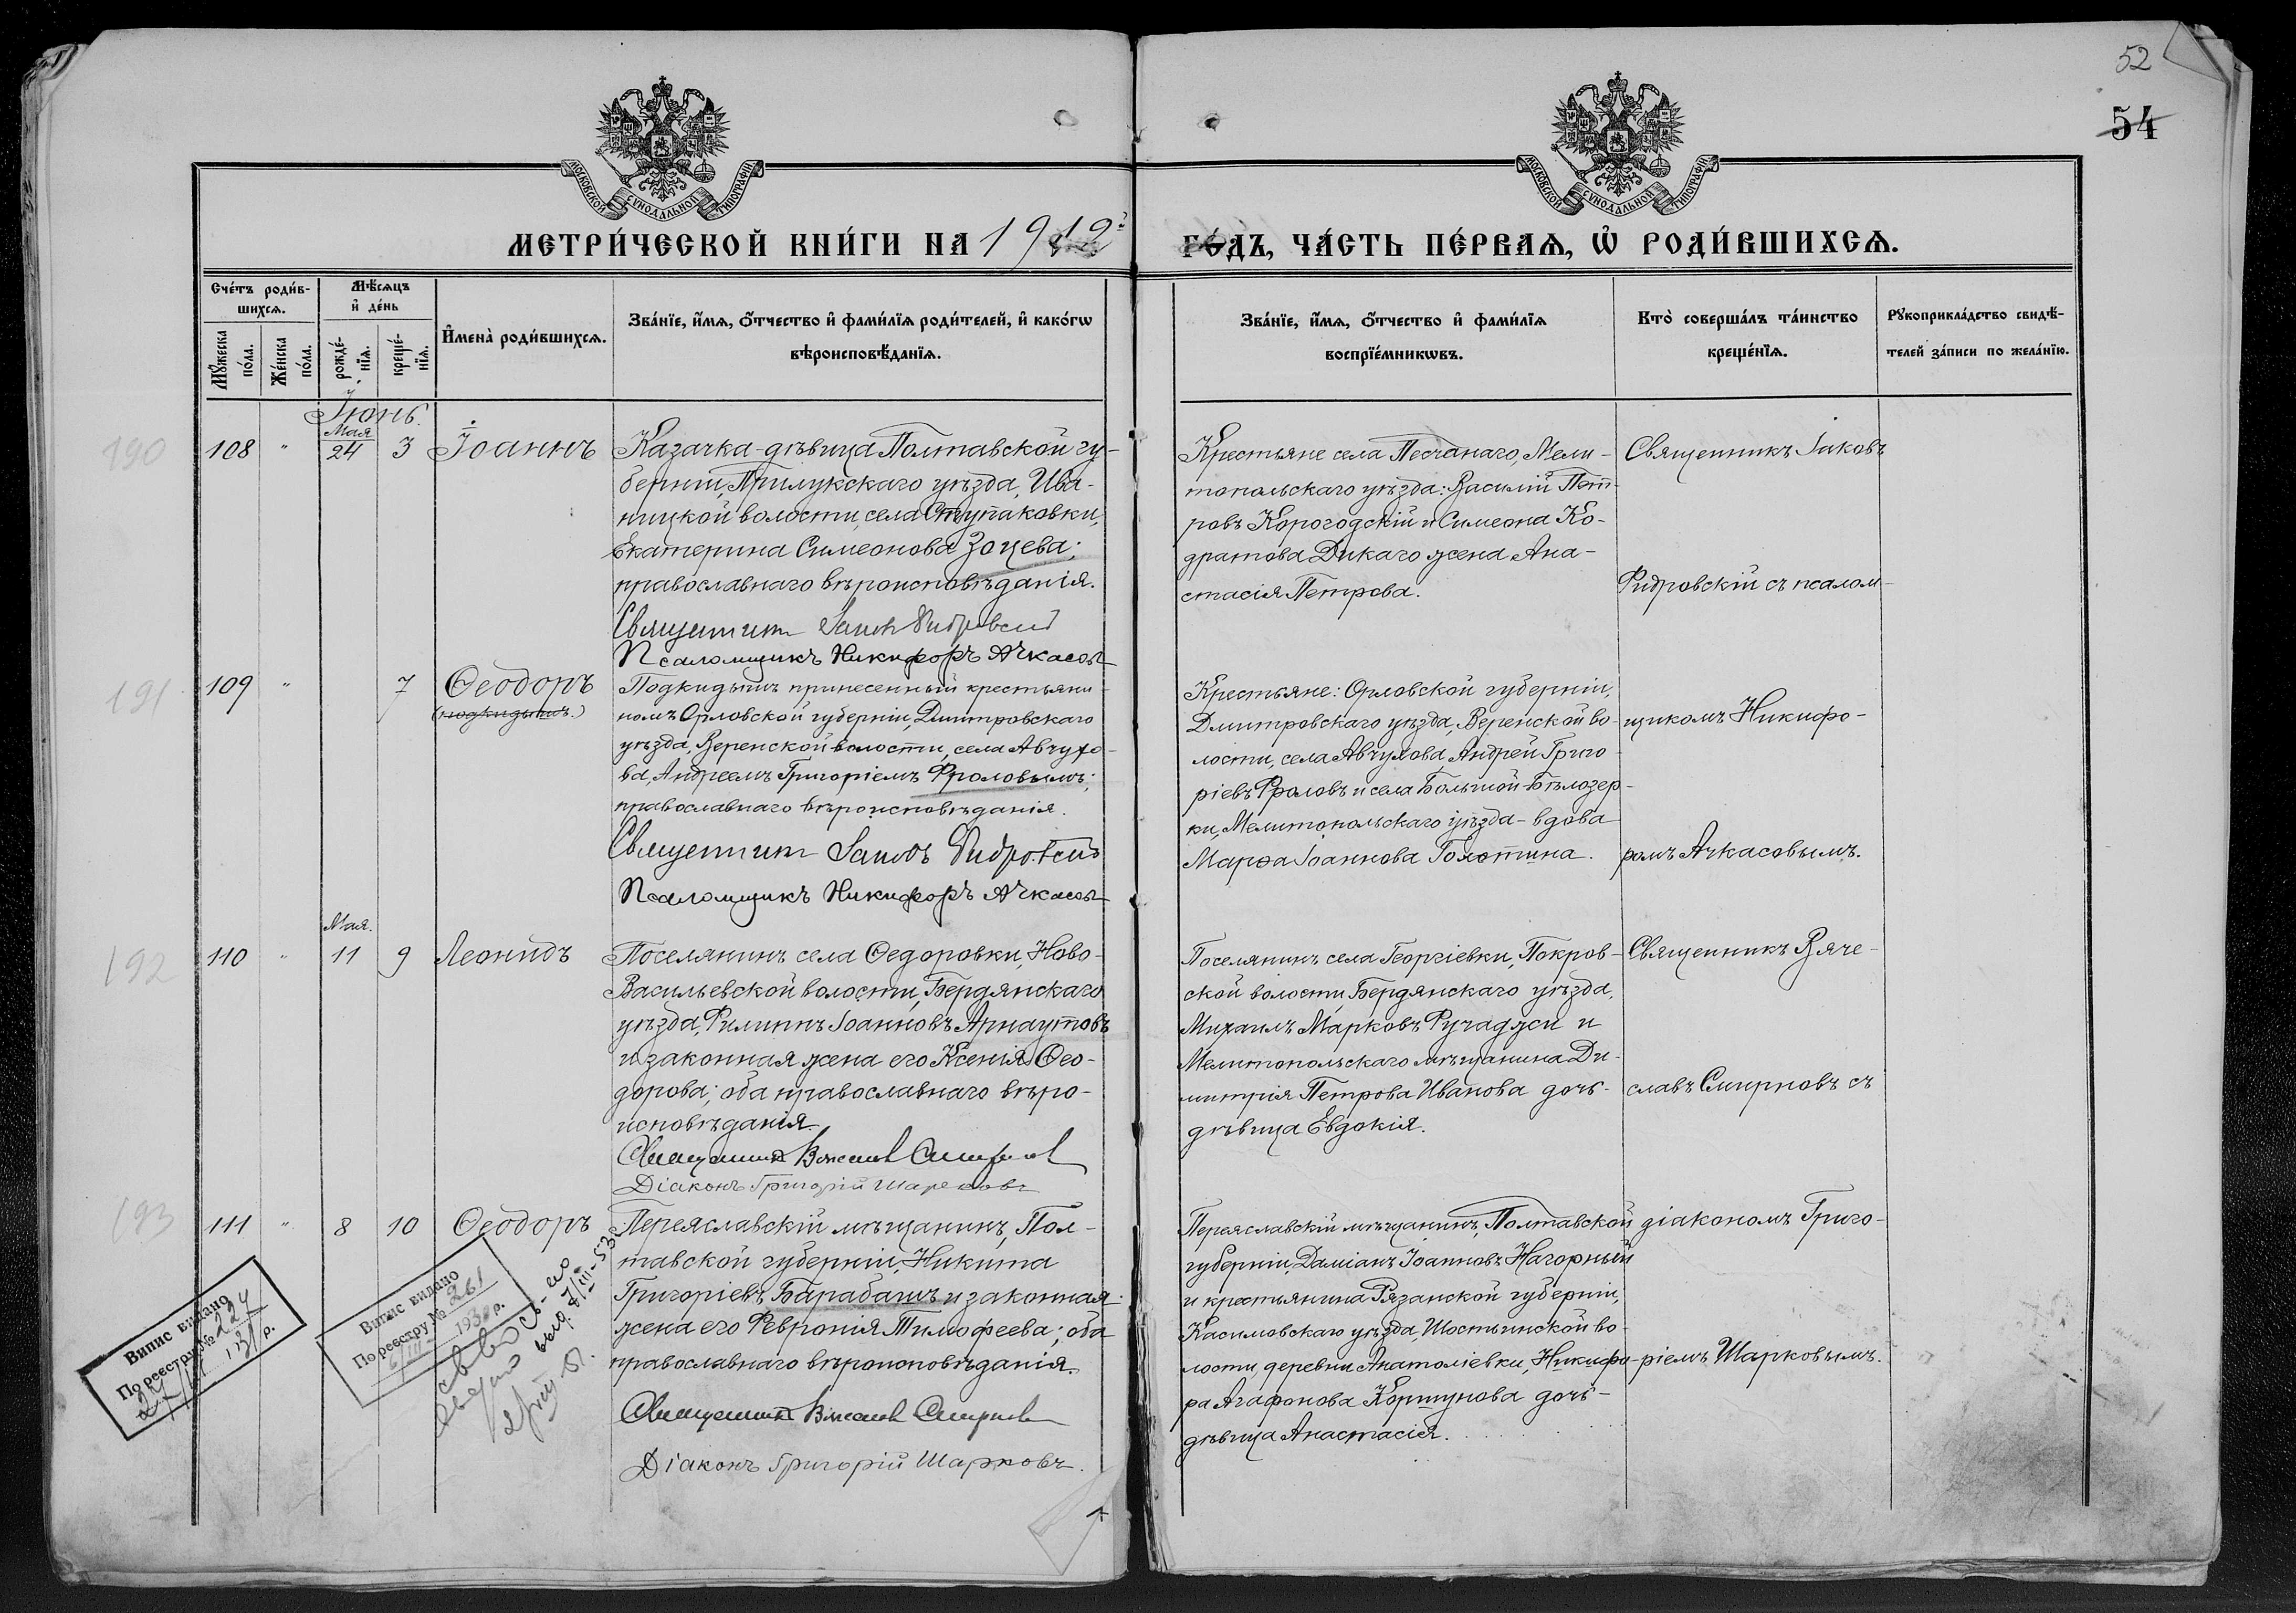 52
54
МОСКОВСКОЙ СѴНОДАЛЬНОЙ ТИПОГРАФІИ
МОСКОВСКОЙ СѴНОДАЛЬНОЙ ТИПОГРАФІИ
МЕТРИ́ЧЕСКОЙ КНИ́ГИ НА 1912 ГО́ДЪ, ЧА́СТЬ ПЕ́РВАѦ, Ѡ҆ РОДИ́ВШИХСѦ.
Сче́тъ роди́в-
шихсѧ.
Мꙋ́жеска по́ла.
Же́нска по́ла.
Мѣ́сѧцъ
и҆ де́нь
рожде́-
нїѧ.
креще́-
нїѧ.
И҆мена̀ роди́вшихсѧ.
Зва́нїе, и҆́мѧ, ѻ҆́тчество и҆ фами́лїѧ роди́телей, и҆ како́гѡ
вѣроисповѣ́данїѧ.
Зва́нїе, и҆́мѧ, ѻ҆́тчество и҆ фами́лїѧ
воспрїе́мникѡвъ.
Кто̀ соверша́лъ та́инство
креще́нїѧ.
Рꙋкоприкла́дство свидѣ́-
телей за́писи по жела́нїю.
Іюнь.
190
108 " Мая 24 3 Іоаннъ
Казачка-дѣвица Полтавской гу-
берніи, Прилукскаго уѣзда, Ива-
ницкой волости, села Ступаковки,
Екатерина Симеонова Зоцева;
православнаго вѣроисповѣданія.
Священникъ Іаковъ Ридровскій
Псаломщикъ Никифоръ Ачкасовъ
Крестьяне села Песчанаго, Мели-
топольскаго уѣзда: Василій Пет-
ровъ Корогодскій и Симеона Ко-
дратова Дикаго жена Ана-
стасія Петрова.
Священникъ Іаковъ
Ридровскій съ псалом-
191
109 " 7 Ѳеодоръ
(подкидышъ.)
Подкидышъ принесенный крестьяни-
номъ Орловской губерніи, Дмитровскаго
уѣзда, Веренской волости, села Авчухо-
ва, Андреемъ Григоріемъ Фроловымъ;
православнаго вѣроисповѣданія.
Священникъ Іаковъ Ридровскій
Псаломщикъ Никифоръ Ачкасовъ
Крестьяне: Орловской губерніи,
Дмитровскаго уѣзда, Веренской во-
лости, села Авчухова, Андрей Григо-
ріевъ Фроловъ и села Большой-Бѣлозер-
ки, Мелитопольскаго уѣзда - вдова
Марѳа Іоаннова Голотина.
щикомъ Никифо-
ромъ Ачкасовымъ.
192
110 " Мая. 11 9 Леонидъ
Поселянинъ села Ѳедоровки, Ново-
Васильевской волости, Бердянскаго
уѣзда, Филиппъ Іоанновъ Арнаутовъ
и законная жена его Ксенія Ѳео-
дорова; оба православнаго вѣро-
исповѣданія.
Священникъ Вячеславъ Смирновъ
Діаконъ Григорій Шарковъ
Поселянинъ села Георгіевки, Покров-
ской волости, Бердянскаго уѣзда,
Михаилъ Марковъ Ручаджи и
Мелитопольскаго мѣщанина Ди-
митрія Петрова Иванова дочь-
дѣвица Евдокія.
Священникъ Вяче-
славъ Смирновъ съ
193
111 " 8 10 Ѳеодоръ
Переяславскій мѣщанинъ, Пол-
тавской губерніи, Никита
Григоріевъ Барабашъ и законная
жена его Февронія Тимофеева; оба
православнаго вѣроисповѣданія.
Священникъ Вячеславъ Смирновъ
Діаконъ Григорій Шарковъ.
Переяславскій мѣщанинъ, Полтавской
губерніи, Даміанъ Іоанновъ Нагорный
и крестьянина Рязанской губерніи,
Касимовскаго уѣзда, Шостьинской во-
лости, деревни Анатоліевки, Никифо-
ра Агафонова Коршунова дочь-
дѣвица Анастасія.
діакономъ Григо-
ріемъ Шарковымъ.
Випис видано
По реестру № 224
Випис видано
По реестру № 261
1930 р.